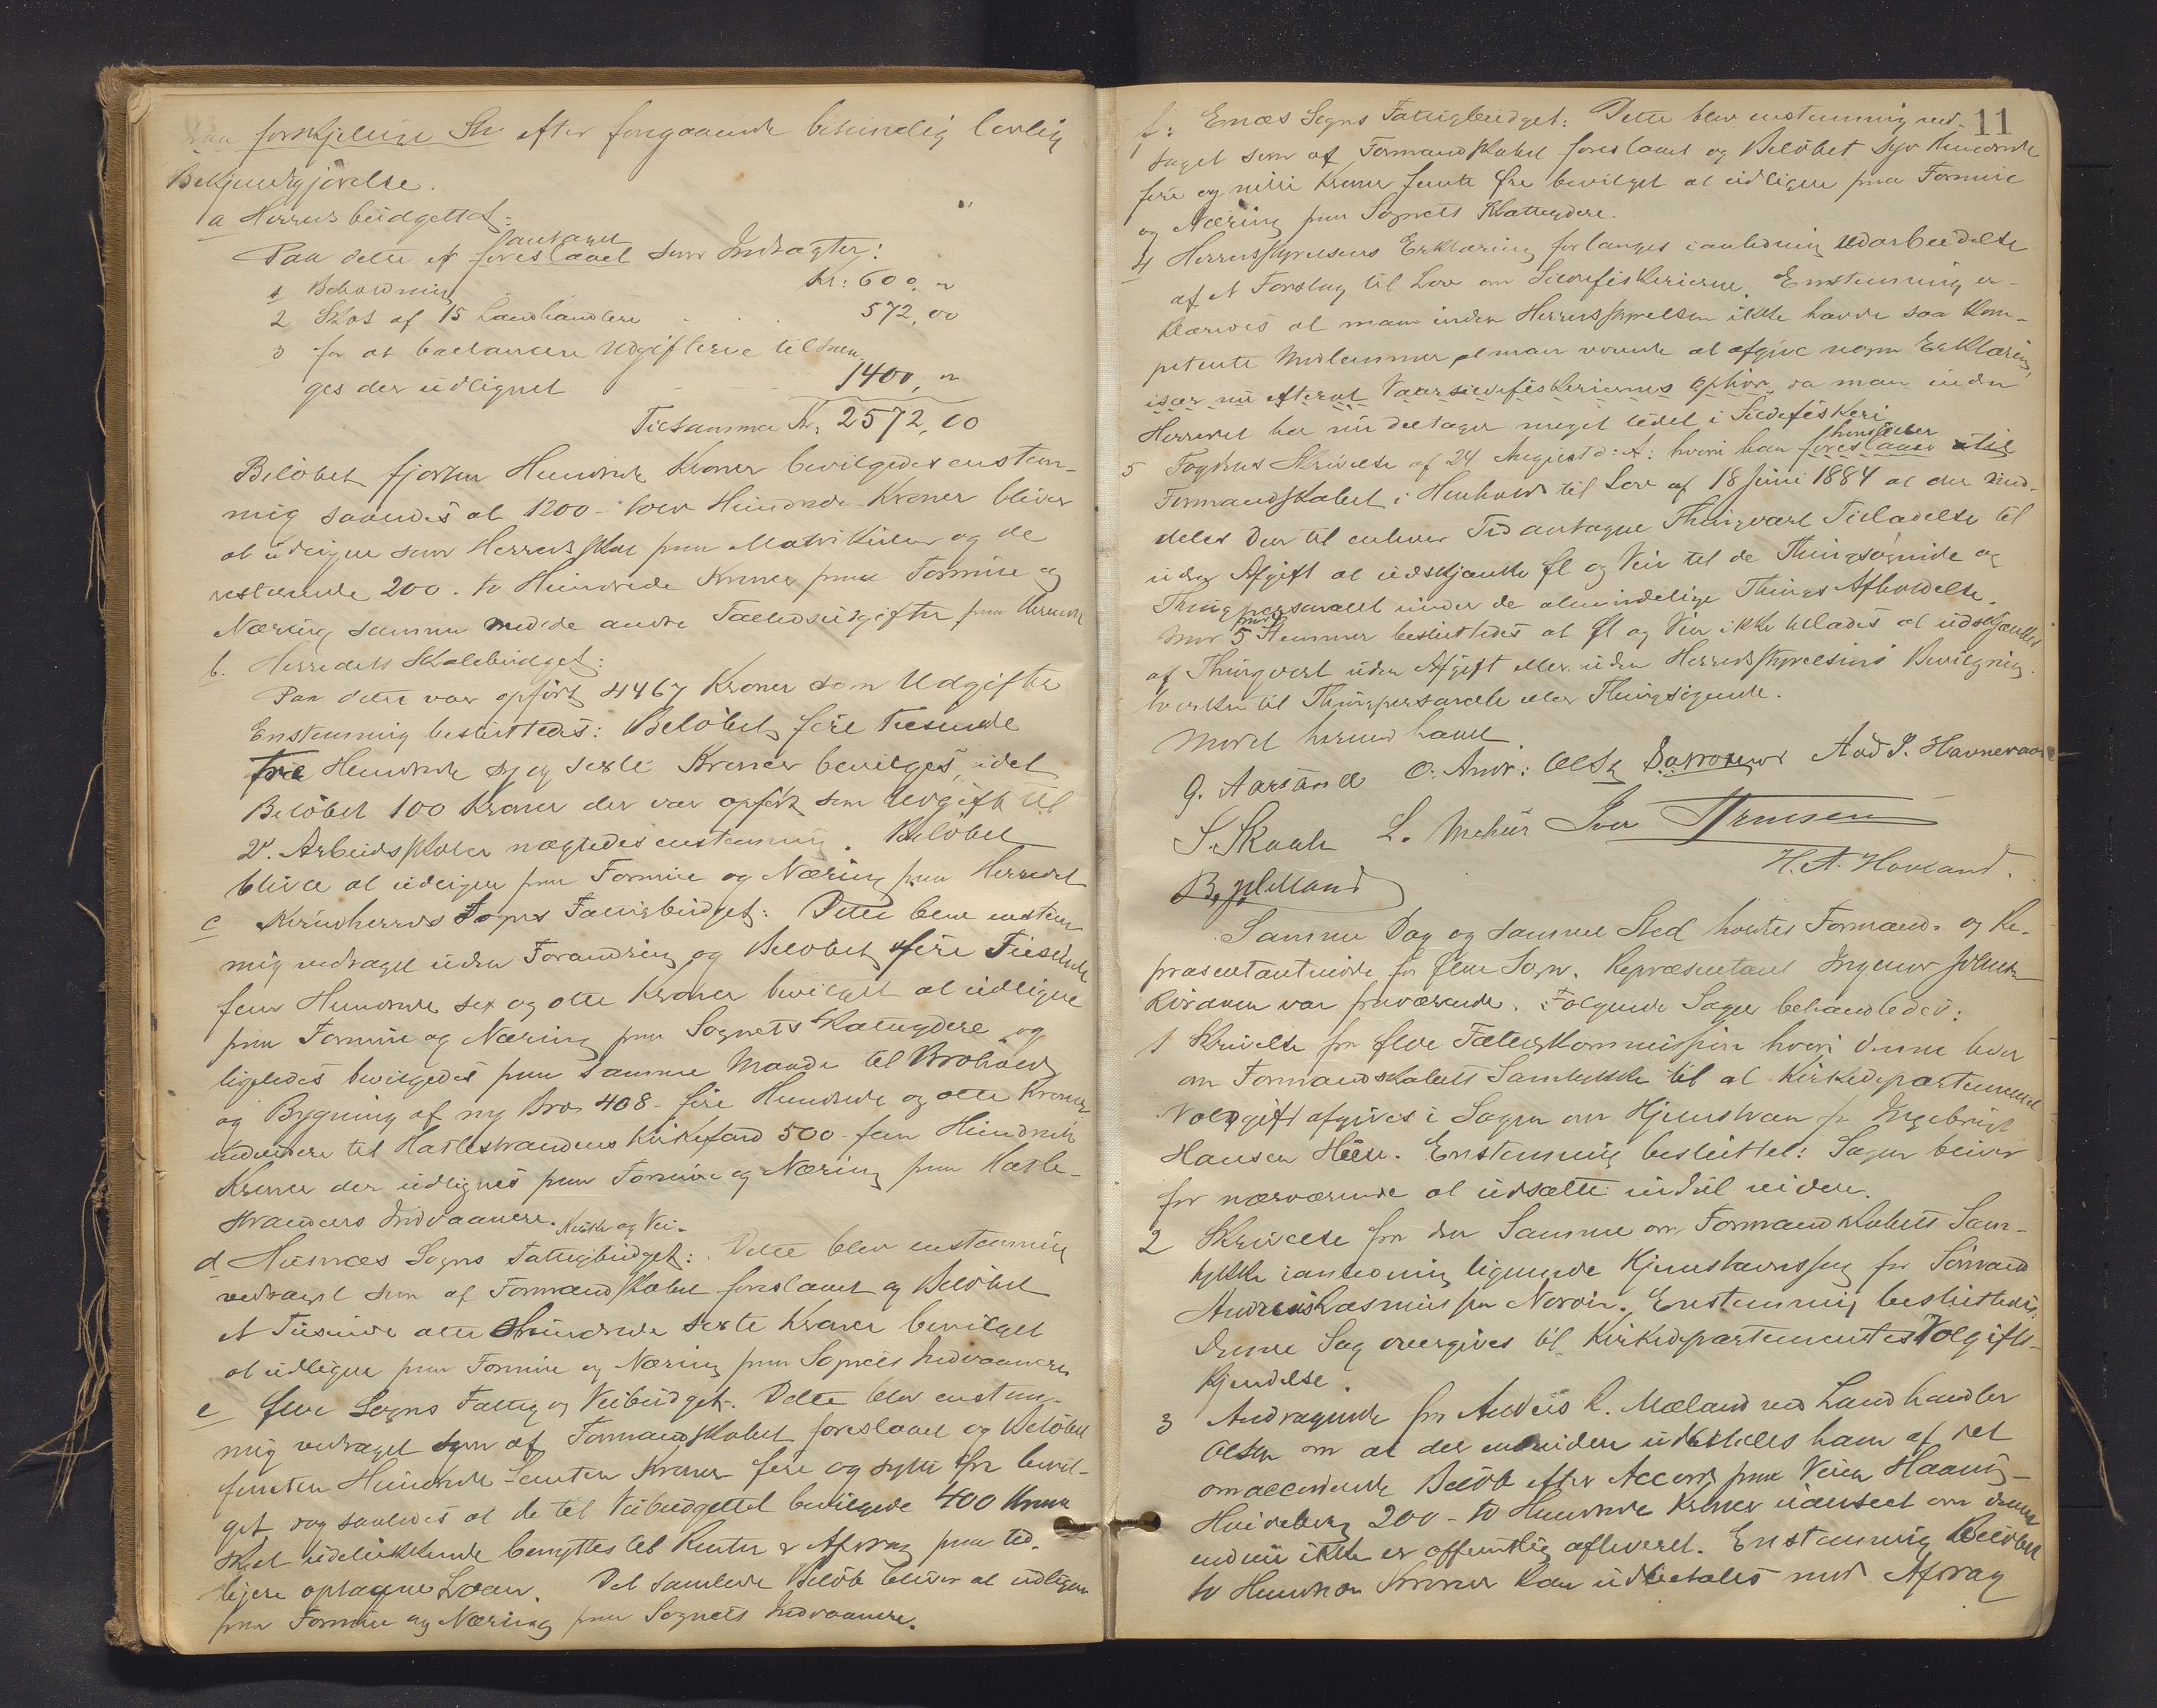 forskjelige St efter foregaaende behørielig lovlig
Bekjendtgjørelse.
a Herredsbudgettet:
antaget
Paa dette er foreslaaet som Indtægter:
1 Beholdning Kr: 600, "
2 Skat af 15 Landhandlere 572,00
3 for at balancere Udgifterne tiltræn-
ges der udlignet 1400, "
Tilsamme Kr. 2572,00
Beløbet fjorten Hundrede Kroner bevilgedes enstem-
mig saaledes at 1200 - tolv Hundrede Kroner bliver
at udligne som Herredsskat paa Matrikulen og de
resterende 200. to Hundrede Kroner paa Formue og
Næring sammen med de andre Fællesudgifter paa Herredet
b. Herredets Skolebudget:
Paa dette var opført 4467 Kroner som Udgifter
Enstemmig besluttedes: Beløbet fire Tusende
tre Hundrede syv og sexti Kroner bevilges, idet
Beløbet 100 Kroner der var opført som Udgift til
2de Arbeidsskoler nægtedes enstemmig. Beløbet
bliver at udligne paa Formue og Næring paa Herredet
c Kvindherreds Sogns Fattigbudget: Dette blev enstem-
mig vedtaget uden Forandring og Beløbet fire Tusende
fem Hundrede sex og otte Kroner bevilget at udligne
paa Formue og Næring paa Sognets Skatteydere og
ligeledes bevilgedes paa samme Maade til Brohold
og Bygning af ny Bro 408 - fire Hundrede og otte Kroner
videre til Hatlestrandens Kirkefond 500 - fem Hundrede
Kroner der udlignes paa Formue og Næring paa Hatle-
strandens Indvaanere.
Kirke og Vei-
d Husnæs Sogns Fattigbudget: Dette blev enstemmig
vedtaget som af Formandskabet foreslaaet og Beløbet
et Tusinde otte Hundrede sexti Kroner bevilget
at udligne paa Formue og Næring paa Sognets Indvaanere
e Ølve Sogns Fattig og Veibudget: Dette blev enstem-
mig vedtaget som af Formandskabet foreslaaet og Beløbet
femten Hundrede femten Kroner fire og sytti Øre bevil-
get dog saaledes at de til Veibudgettet bevilgede 400 Kroner
skal udelukkende benyttes til Renter & Afdrag paa tid-
ligere optagne Laan. Det samlede Beløb bliver at udligne
paa Formue og Næring paa Sognets Indvaanere.
11
f: Enæs Sogns Fattigbudget: Dette blev enstemmig ved-
taget som af Formandskabet foreslaaet og Beløbet syv Hundrede
fire og niti Kroner femti Øre bevilget at udligne paa Formue
og Næring paa Sognets Skatteydere.
4 Herredsstyrelsens Erklæring forlanges i anledning Udarbeidelse
af et Forslag til Lov om Sildefiskerierne. Enstemmig er-
klæredes at man inden Herredsstyrelsen ikke havde saa kom-
petente Medlemmer at man vovede at afgive nogen Erklæring,
især nu efterat Vaarsildefiskeriernes Ophør, da man inden
Herredet her nu deltager meget lidet i Sildefiskeri
henstiller
5 Fogdens Skrivelse af 24 August d: A: hvori han foreslaaer til
Formandskabet i Henhold til Lov af 18 Juni 1884 at der med-
deles den til enhver Tid antagne Thingvært Tilladelse til
uden Afgift at udskjænke Øl og Vin til de Thingsøgende og
Thingpersonalet under de almindelige Things Afholdelse.
mod
Med 5 Stemmer besluttedes at Øl og Vin ikke tillades at udskjænkes
af Thingvært uden Afgift eller uden Herredsstyrelsens Bevilgning.
hverken til Thingpersonale eller Thingsøgende.
Mødet hermed hævet
G. Aarsand O. Andr: Olsen Aad P. Havnevaag
S. Skaale L. Mehus Iver
H. A. Hovland.
B.
Samme Dag og samme Sted holdtes Formands- og Re-
præsentantmøde for Ølve Sogn. Repræsentant Ingemor Johnsen
var fraværende. Følgende Sager behandledes:
1 Skrivelse fra Ølve Fattigkommission hvori denne beder
om Formandskabets Samtykke til at Kirkedepartementets
Voldgift afgives i Sagen om Hjemstavn for Ingebrigt
Hansen Huse. Enstemmig besluttet: Sagen bliver
for nærværende at udsætte indtil videre.
2 Skrivelse fra den Samme om Formandskabets Sam-
tykke i anledning lignende Hjemstavnssag for Sømand
Andreas Rasmussen Nervik. Enstemmig besluttedes:
Denne Sag overgives til Kirkedepartementets Volgifts-
kjendelse.
3 Andragende fra Anders L. Mæland ved Landhandler
Olsen om at der endvidere udbetales ham af det
omaccorderede Beløb efter Accord paa Veien Haavig-
Hvideberg 200 - to Hundrede Kroner uanseet om denne
endnu ikke er offentlig afleveret. Enstemmig Beløbet
to Hundrede Kroner kan udbetales mod Afdrag